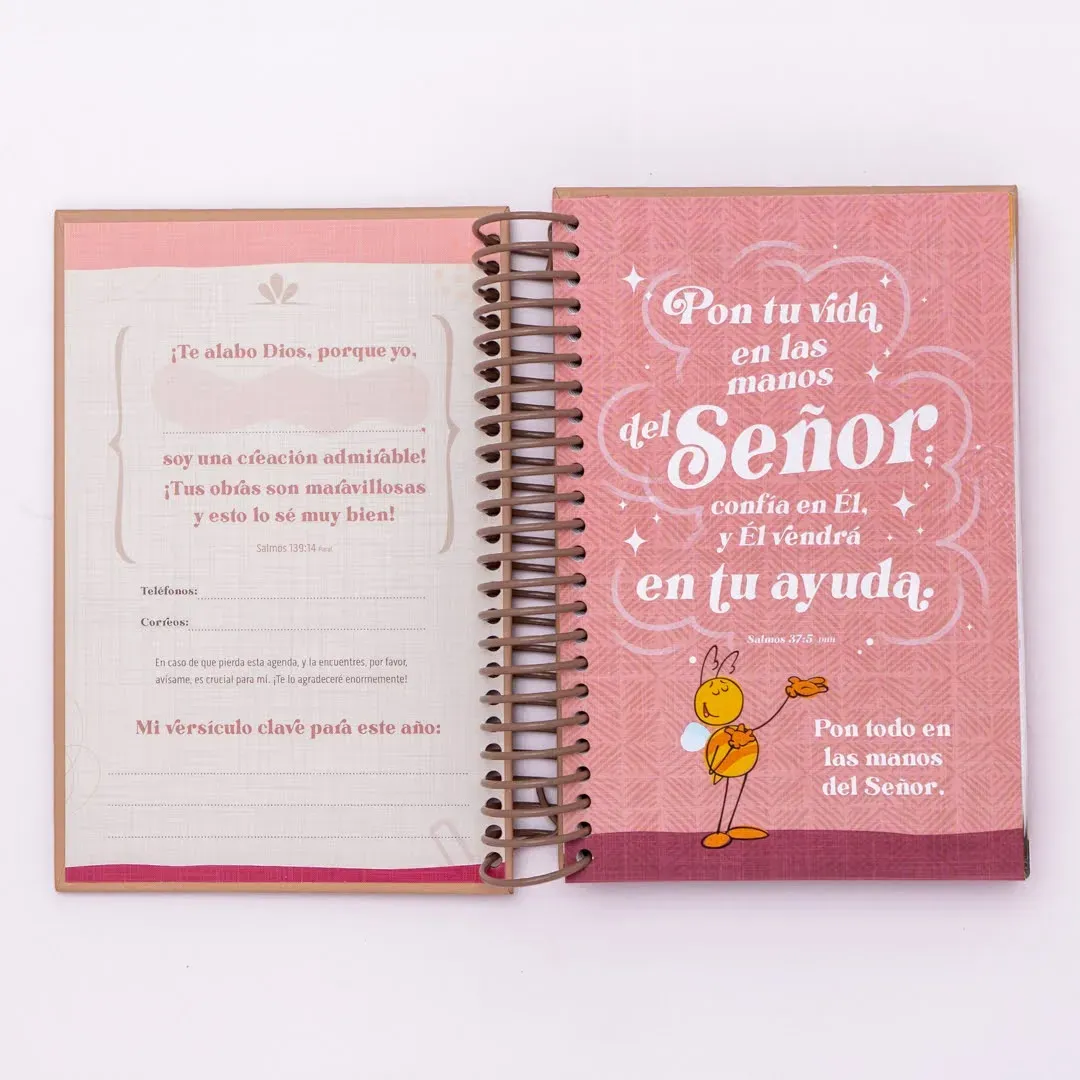 ¡Te alabo Dios, porque yo,
soy una creación admirable!
¡Tus obras son maravillosas
y esto lo sé muy bien!
Salmos 139:14 Paraf.
Teléfonos:
Correos:
En caso de que pierda esta agenda, y la encuentres, por favor,
avísame, es crucial para mí. ¡Te lo agradeceré enormemente!
Mi versículo clave para este año:
Pon tu vida
en las
manos
del Señor;
confía en Él,
y Él vendrá
en tu ayuda.
Salmos 37:5
Pon todo en
las manos
del Señor.